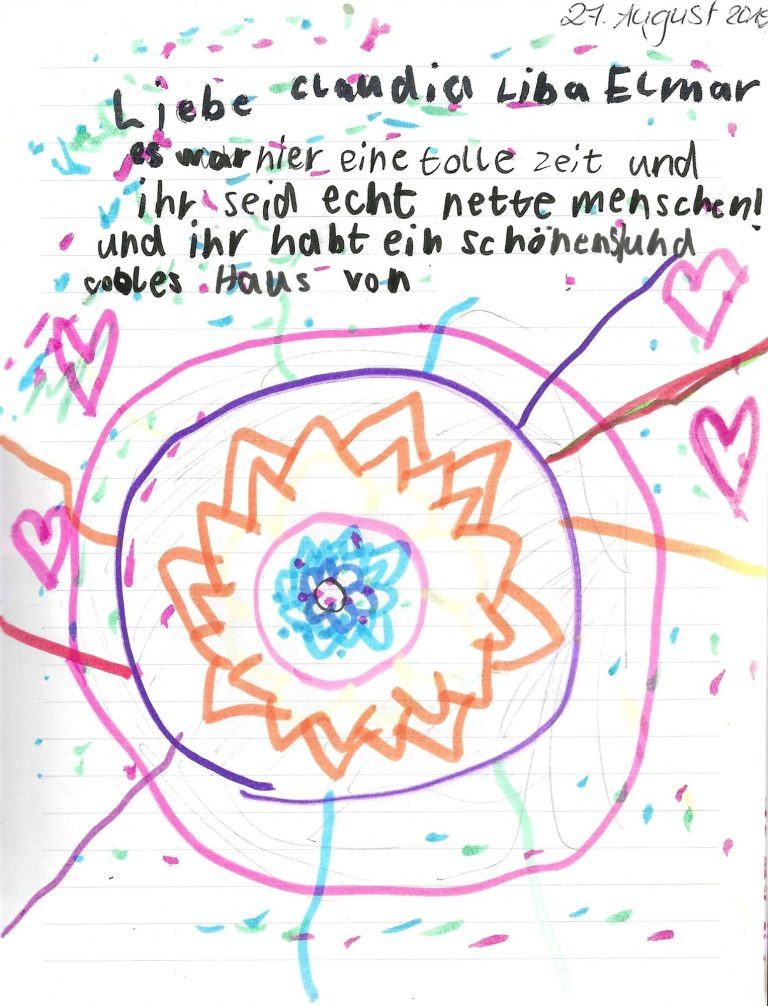 27. August
Liebe claudia Liba Elmar
es war hier eine tolle zeit und
ihr seid echt nette menschen!
und ihr habt ein schönens und
cooles Haus von